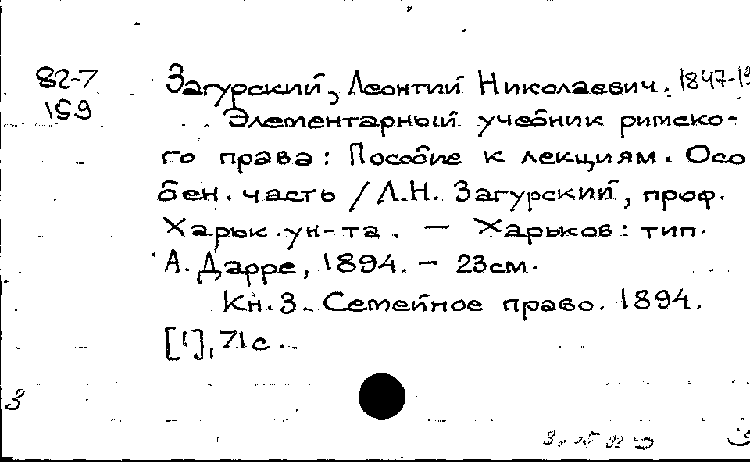 82-7
159
Загурский, Леонтий Николаевич. 1847-19
Элементарный учебник римско-
го права: Пособие к лекциям. Осо
бен. часть / Л.Н. Загурский, проф.
Харьк. ун-та. — Харьков: тип.
А. Дарре, 1894. — 23см.
Кн. 3. Семейное право. 1894.
[1], 71с.
3